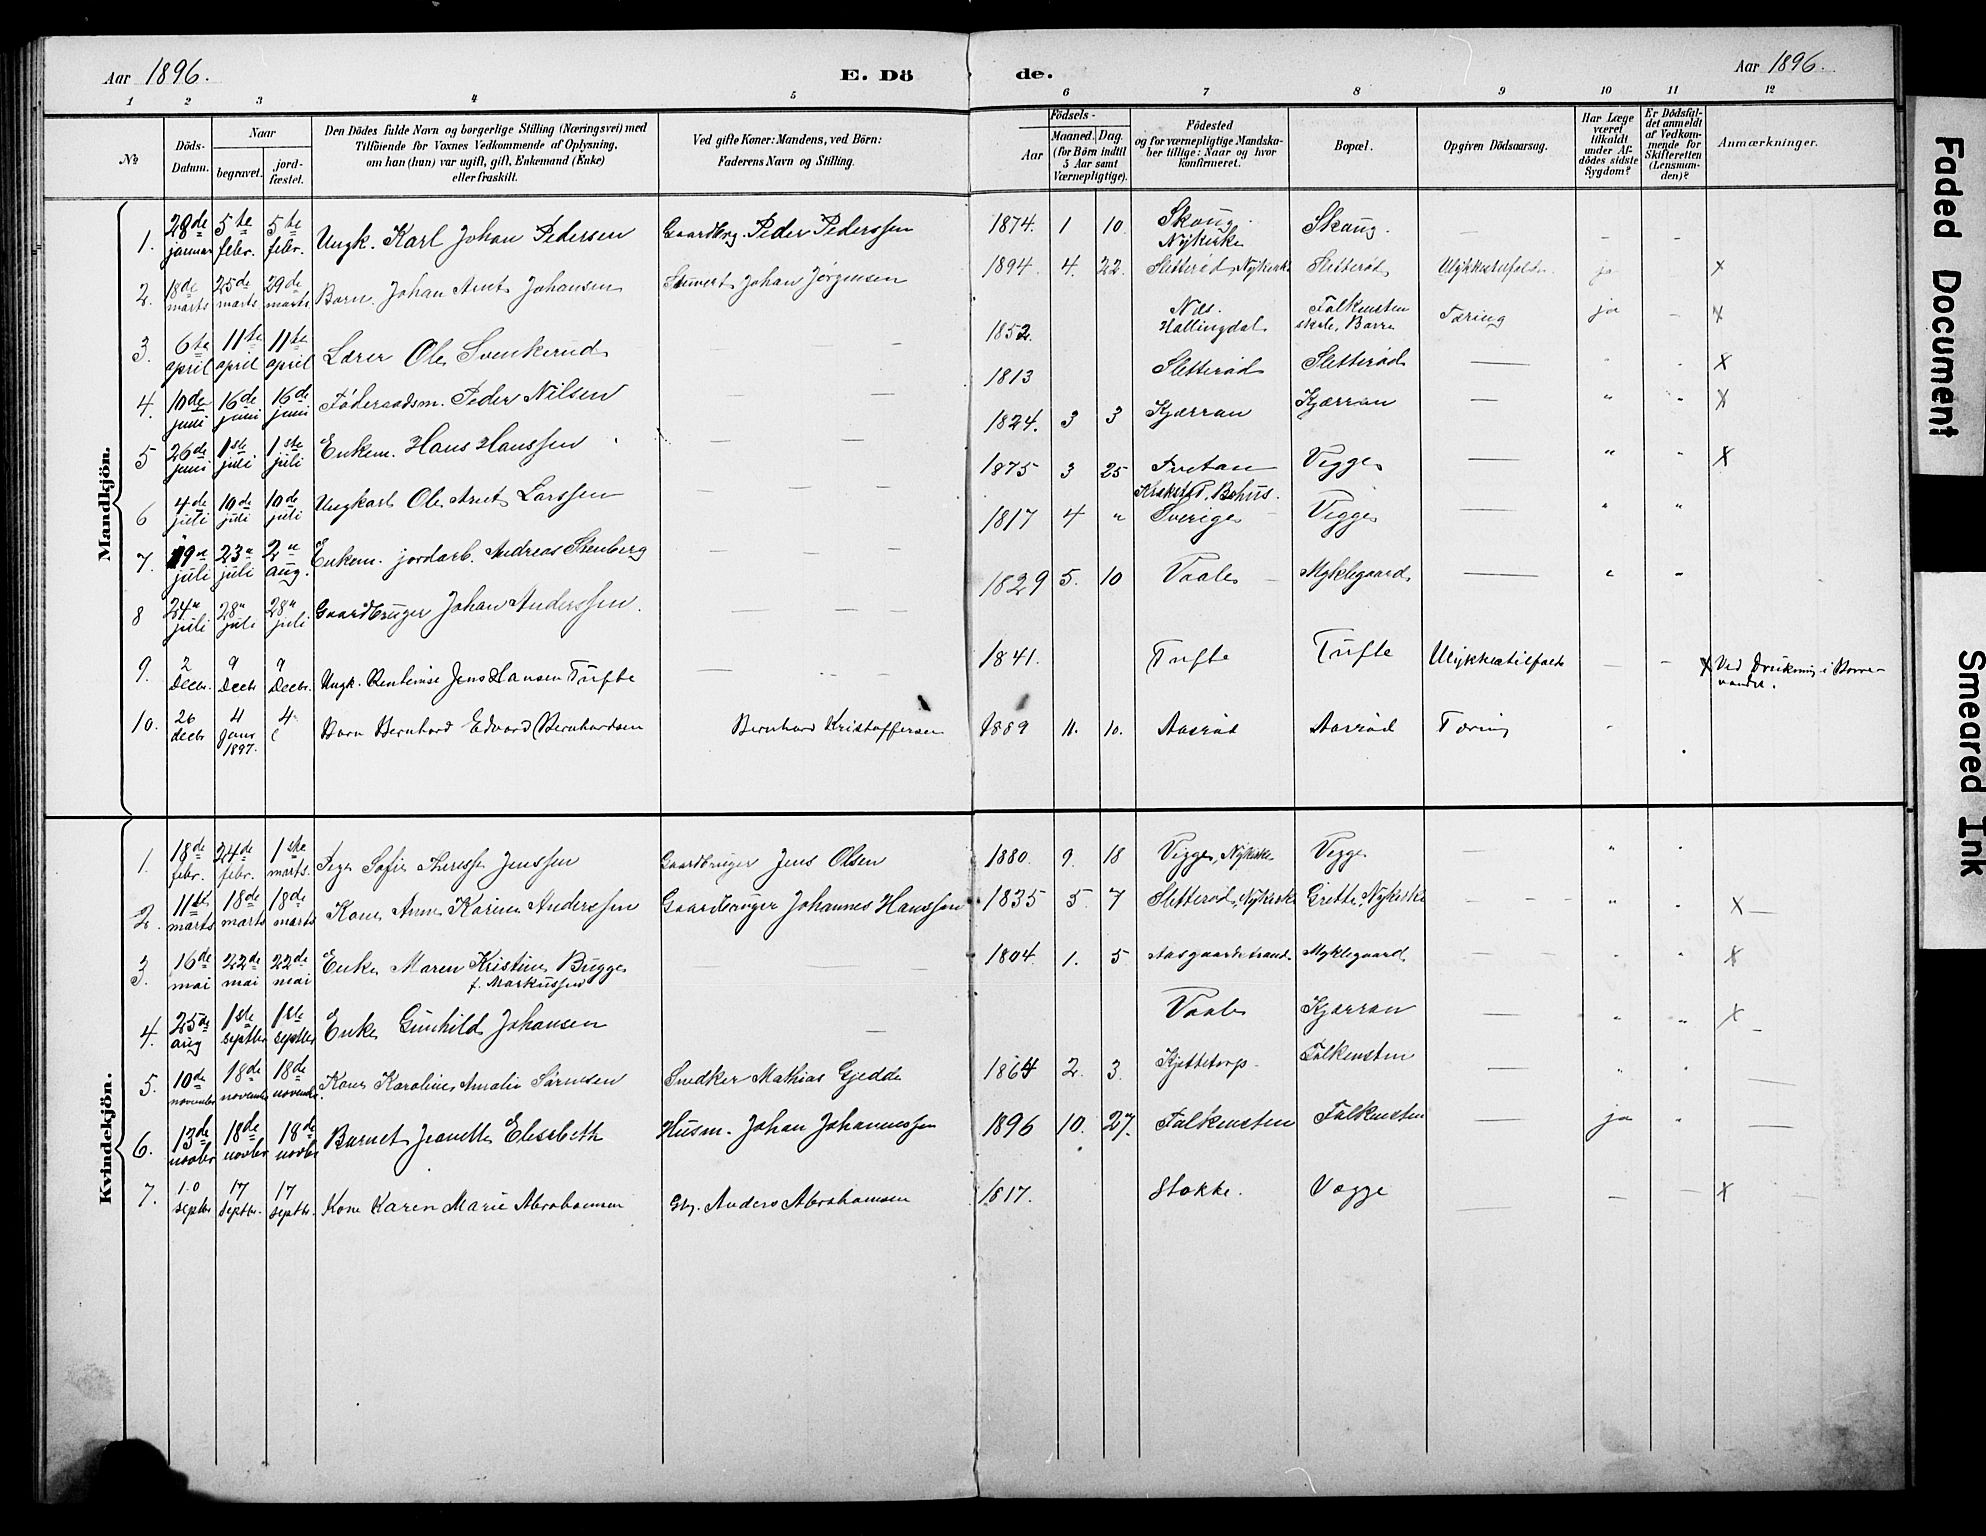 Aar 1896.
E. Dö
de.
Aar 1896.
1 2 3 4 5 6 7 8 9 10 11 12
No
Döds-Datum.
Naar
begravet.
jord-fæstet.
Den Dödes fulde Navn og borgerlige Stilling (Næringsvei) med
Tilföiende for Voxnes Vedkommende af Oplysning,
om han (hun) var ugift, gift, Enkemand (Enke)
eller fraskilt.
Ved gifte Koner: Mandens, ved Börn:
Faderens Navn og Stilling.
Födsels-
Aar
Maaned. Dag.
(for Börn indtil
5 Aar samt
Værnepligtige).
Födested
og for værnepligtige Mandska-
ber tillige: Naar og hvor
konfirmeret.
Bopæl.
Opgiven Dödsaarsag.
Har Læge
været
tilkaldt
under Af-
dödes sidste
Sygdom?
Er Dödsfal-
det anmeldt
af Vedkom-
mende for
Skifteretten
(Lensman-
den)?
Anmærkninger.
Mandkjön.
1. 28de januar 5te febr. 5te febr. Ungk. Karl Johan Pedersen Gaardbrg. Peder Pederssen 1874 1 10. Skoug. Nykirke Skoug. — — —
2. 18de marts 25de marts 29de marts Barn. Johan Arnt Johansen Johan Jørgensen 1894. 4. 22. Sletterød, Nykirke Sletterød Ulykkestilfælde ja — x
3. 6te april 11te april 11te april Lærer Ole Svenkerud — — 1852. Nes. Hallingdal Falkensten skole, Borre Tæring ja — x
4. 10de juni 16de juni 16de juni Føderaadsm. Peder Nilsen — — 1813 Sletterød Sletterød — " " x
5 26de juni 1ste juli 1ste juli Enkem. Hans Hanssen — — 1824. 3 3 Kjærran Kjærran — " " x
6 4de juli 10de juli 10de juli Ungkarl Ole Arnt Larssen — — 1875 3 25 Tvetan Vegge — " " x
7. 19de juli 23" juli 2" aug. Enkem. jordarb. Andreas Stenberg — — 1817 4 " Krokstad, Bohus. Sverige Vegge — " "
8 24" juli 28" juli 28" juli Gaardbruger Johan Anderssen. — — 1829 5. 10 Vaale Myklegaard — " "
9. 2 Decbr. 9 Decbr 9 Decbr. Ungk. Jens Hansen Tufte — 1841. Tufte Tufte Ulykkestilfælde — — x Ved Drukning i Borre-
vandet.
10. 26 decbr 4 Janr 1897. 4 Barn Bernhard Edvard Bernhardsen Bernhard Kristoffersen 1889 11. 10. Aasrød Aasrød Tæring "
Kvindekjön.
1. 18de febr. 24de febr. 1ste marts. Pige Sofie Therese Jenssen Gaardbruger Jens Olsen 1880. 9. 18 Vegge, Nykirke Vegge — " "
2. 11te marts 18de marts 18de marts Kone Anne Karine Anderssen Gaardbruger Johannes Hanssen 1835 5. 7 Sletterød, Nykirke Grette, Nykirke — " " x —
3. 16de mai 22de mai 22de mai Enke Maren Kristine Bugge
f. Markussen — — 1804 1. 5 Aasgaardstrand Myklegaard — " " x
4. 25de aug 1ste septbr 1ste septbr Enke Gunhild Johansen — Vaale Kjærran — " " x —
5. 10de november 18de november 18de november Kone Karoline Amalie Sørensen Snedker Mathias Gjedde 1864 2. 3. Kjettetorp Falkensten — " " —
6. 13de novbr 18de novbr 18de novbr Barnet Jeanette Elisabeth Husm. Johan Johannessen 1896 10. 27. Falkensten Falkensten — ja " —
7. 10 septbr 17 septbr. 17 septbr. Kone Karen Marie Abrahamsen Gbr. Anders Abrahamsen 1817. Stokke. Vegge — — — x
Faded Document
Smeared Ink